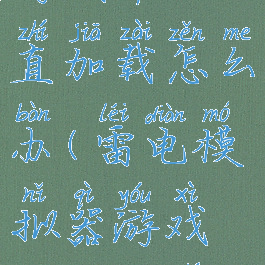 zhí jiā zài zěn me
直加载怎么
bàn léi diàn mó
办(雷电模
nǐ qì yóu xì
拟器游戏